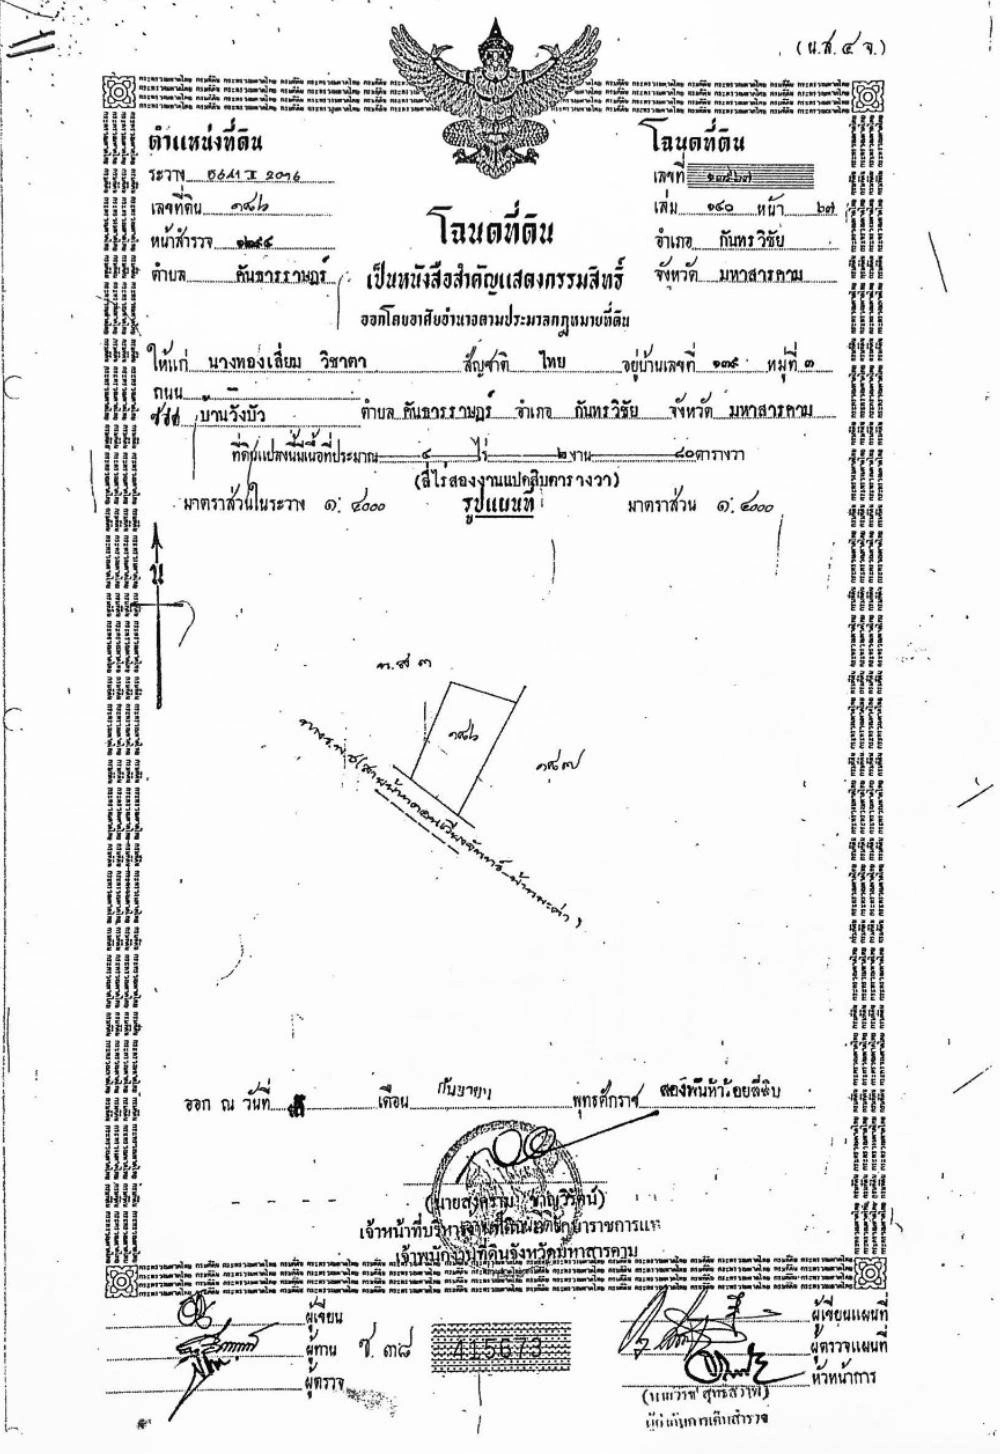 (น.ส. ๔ จ.)
ตำแหน่งที่ดิน
โฉนดที่ดิน
ระวาง 5641 I 2016
เลขที่
เลขที่ดิน ๑๘๖
เล่ม ๑๔๐ หน้า ๖๗
หน้าสำรวจ ๑๒๙๔
โฉนดที่ดิน
อำเภอ กันทรวิชัย
ตำบล คันธารราษฎร์
จังหวัด มหาสารคาม
เป็นหนังสือสำคัญแสดงกรรมสิทธิ์
ออกโดยอาศัยอำนาจตามประมวลกฎหมายที่ดิน
ให้แก่ นางทองเลี่ยม วิชาตา สัญชาติ ไทย อยู่บ้านเลขที่ ๑๓๙ หมู่ที่ ๓
ถนน -
บ้านวังบัว ตำบล คันธารราษฎร์ อำเภอ กันทรวิชัย จังหวัด มหาสารคาม
ที่ดินแปลงนี้มีเนื้อที่ประมาณ ๔ ไร่ ๒ งาน ๘๐ ตารางวา
(สี่ไร่สองงานแปดสิบตารางวา)
มาตราส่วนในระวาง ๑: ๔๐๐๐ รูปแผนที่ มาตราส่วน ๑: ๔๐๐๐
น
๑๘๖
๑๘๗
ออก ณ วันที่ เดือน กันยายน พุทธศักราช สองพันห้าร้อยสี่สิบ
(นายสงคราม ชาญวิรัตน์)
เจ้าพนักงานที่ดินจังหวัดมหาสารคาม
ผู้เขียน
ผู้ทาน
ผู้ตรวจ
ช. ๓๘
415673
ผู้เขียนแผนที่
ผู้ตรวจแผนที่
หัวหน้าการ
ผู้กำกับการเดินสำรวจ